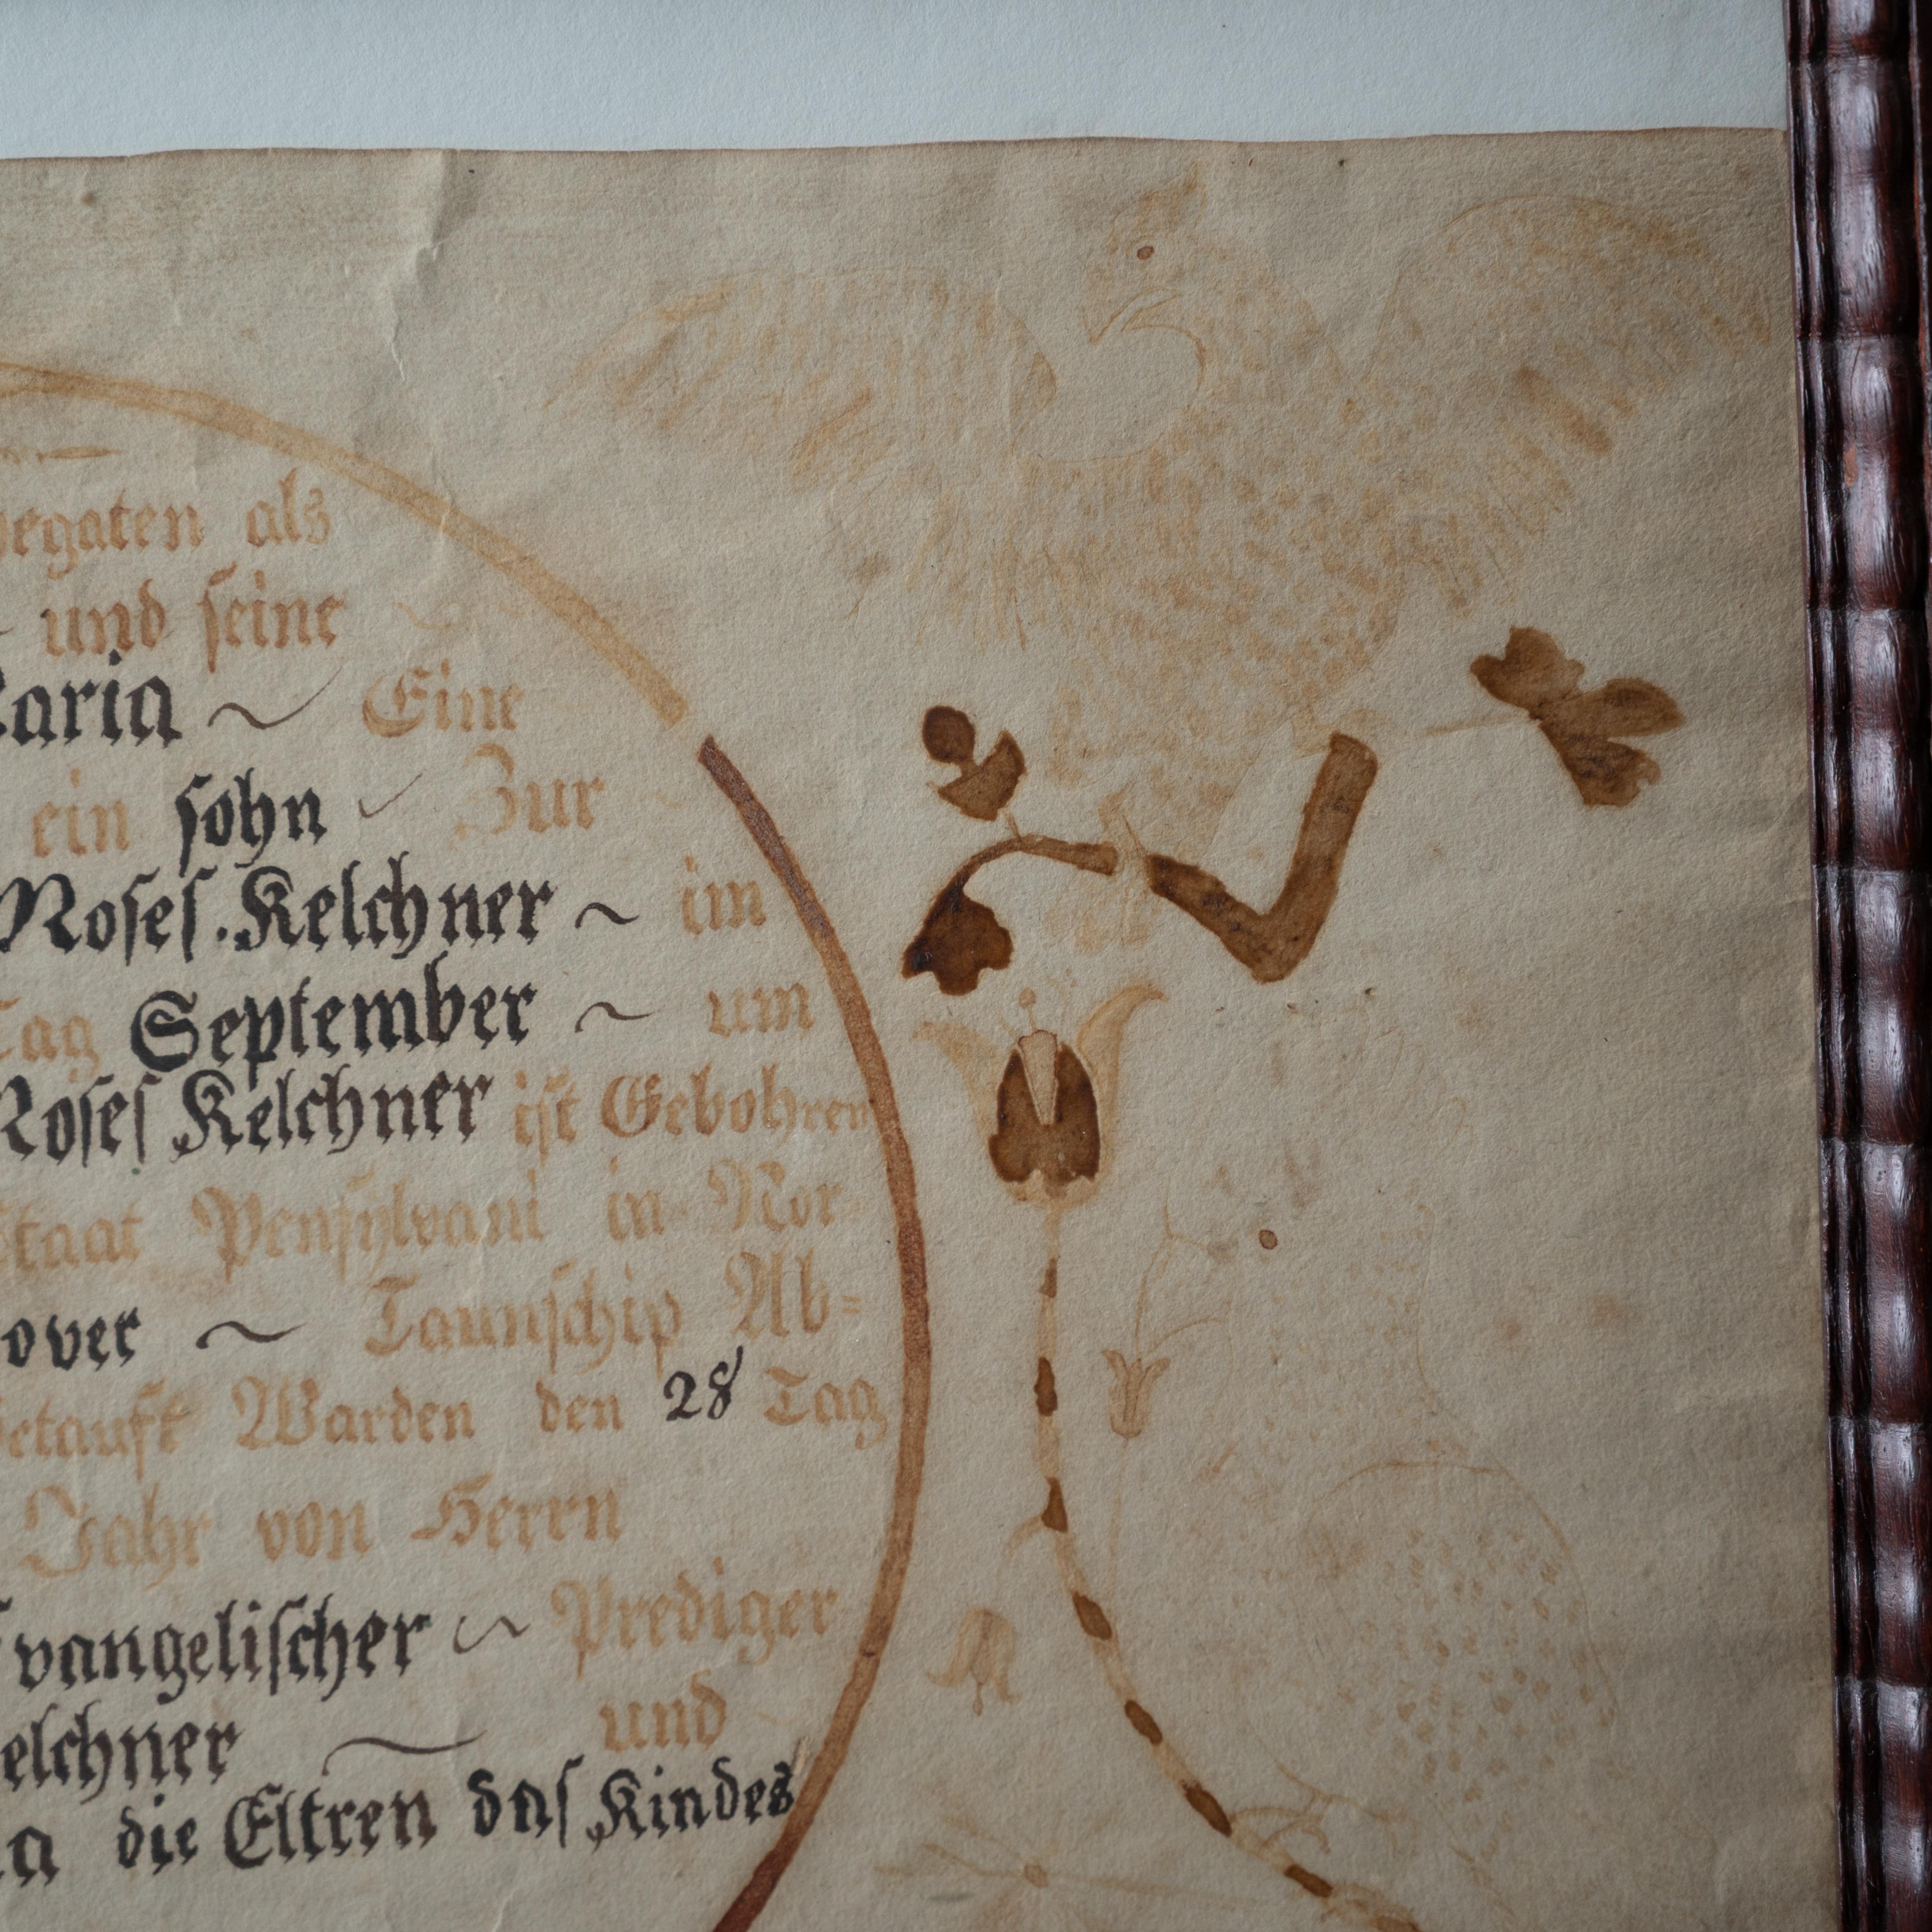 als
und seine
Eine
ein sohn Zur
Moses. Kelchner ~ im
Tag September ~ um
Moses Kelchner ist Gebohren
Staat Pensylvani in Nor
over ~ Taunschip Ab=
Getauft Warden den 28 Tag
Jahr von Herrn
Evangelischer ~ Prediger
elchner ~ und
a die Eltren das Kindes